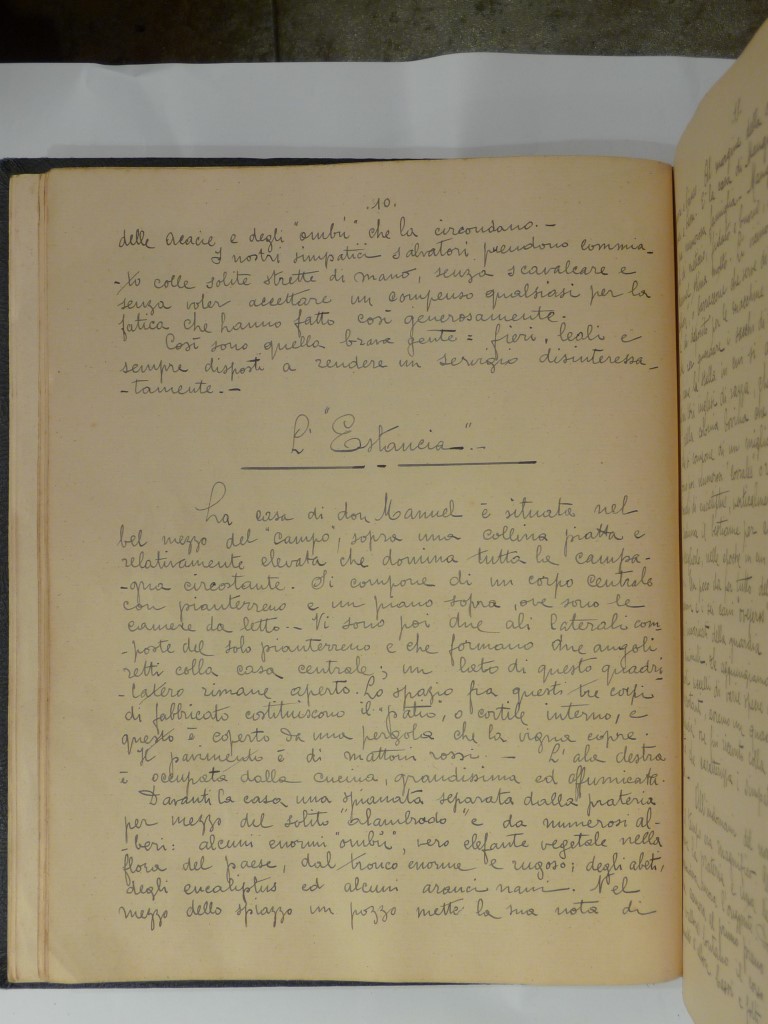 .10.
delle acacie e degli "ombú" che la circondano. -
I nostri simpatici salvatori prendono commia-
-to colle solite strette di mano, senza scavalcare e
senza voler accettare un compenso qualsiasi per la
fatica che hanno fatto così generosamente.
Così sono quella brava gente = fieri, leali e
sempre disposti a rendere un servigio disinteressa-
-tamente. -
L' "Estancia". -
La casa di don Manuel è situata nel
bel mezzo del "campo", sopra una collina piatta e
relativamente elevata che domina tutta la campa-
-gna circostante. Si compone di un corpo centrale
con pianterreno e un piano sopra, ove sono le
camere da letto. - Vi sono poi due ali laterali com-
-poste del solo pianterreno e che formano due angoli
retti colla casa centrale; un lato di questo quadri-
-latero rimane aperto. Lo spazio fra questi tre corpi
di fabbricato costituiscono il "patio", o cortile interno, e
questo è coperto da una pergola che la vigna copre.
Il pavimento è di mattoni rossi. - L'ala destra
è occupata dalla cucina, grandissima ed affumicata.
Davanti la casa una spianata separata dalla prateria
per mezzo del solito "alambrado" e da numerosi al-
-beri: alcuni enormi "ombú", vero elefante vegetale nella
flora del paese, dal tronco enorme e rugoso; degli abeti,
degli eucaliptus ed alcuni aranci nani. Nel
mezzo dello spiazzo un pozzo mette la sua nota di